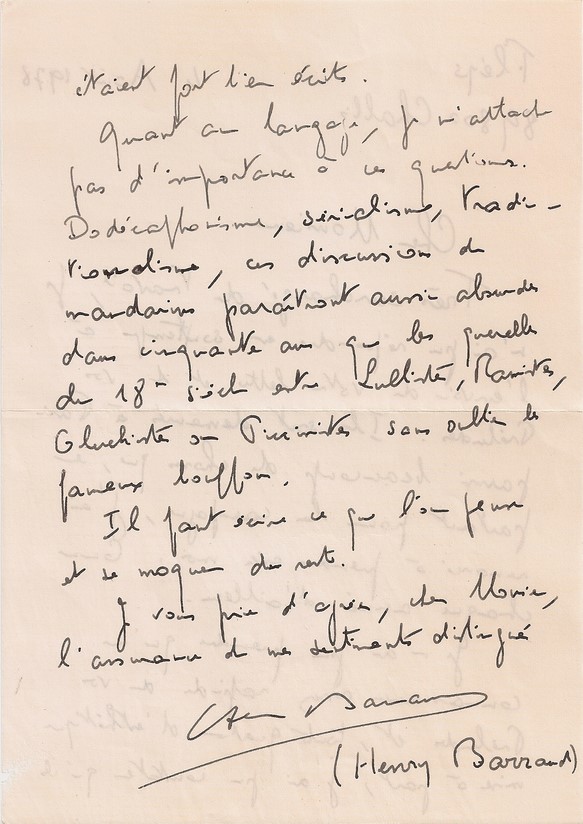 étaient fort bien écrits.
Quant au langage, je n'attache
pas d'importance à ces questions.
Dodécaphonisme, sérialisme, tradi-
tionalisme, ces discussions de
mandarins paraîtront aussi absurdes
dans cinquante ans que les querelles
du 18me siècle entre Lullistes, Ramistes,
Gluckistes ou Piccinistes sans oublier les
fameux bouffons.
Il faut écrire ce que l'on pense
et se moquer du reste.
Je vous prie d'agréer, cher Monsieur,
l'assurance de mes sentiments distingués
(Henry Barraud)